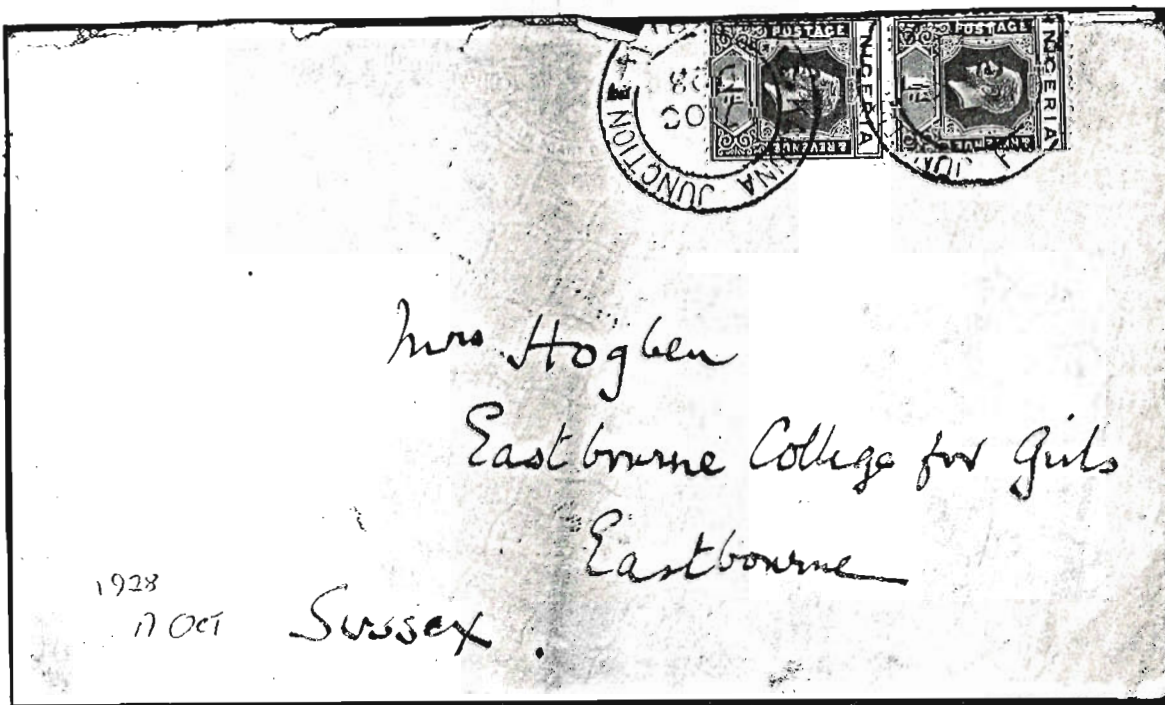 POSTAGE
NIGERIA
& REVENUE
POSTAGE
NIGERIA
JUNCTION
Mrs Hogben
Eastbourne College for Girls
Eastbourne
Sussex.
1928
17 OCT